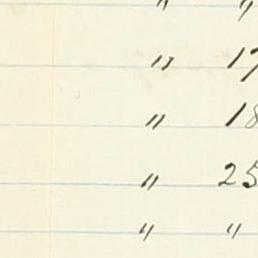 " "
" 17
" 18
" 25
" "